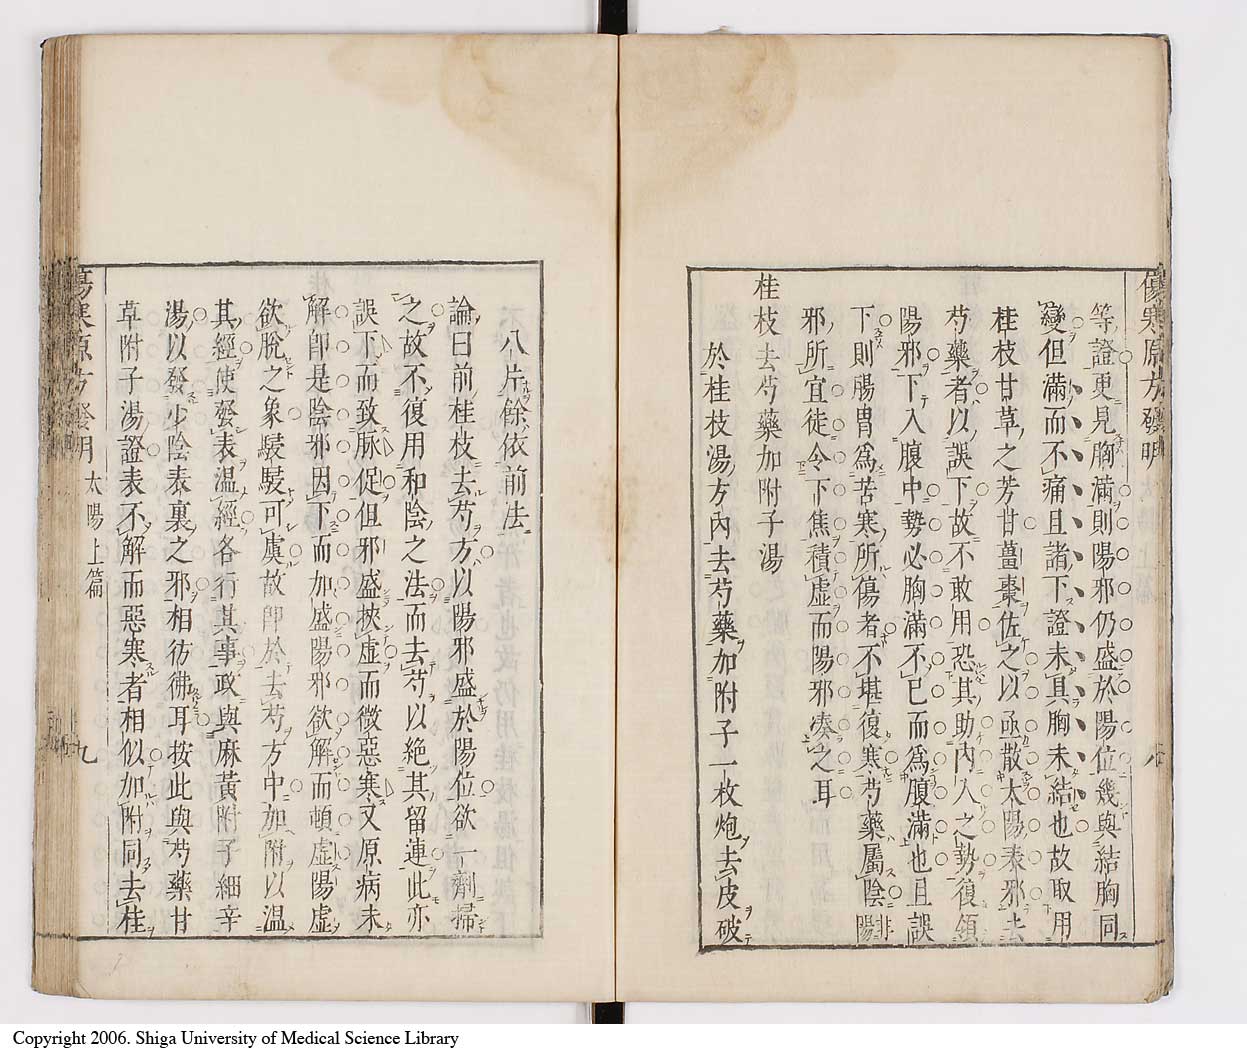 傷寒原方發明
等證更見胸滿則陽邪仍盛於陽位幾與結胸同
變但滿而不痛且諸下證未具胸未結也故取用
桂枝甘草之芳甘薑棗佐之以亟散太陽表邪去
芍藥者以誤下故不敢用恐其助內入之勢復領
陽邪下入腹中勢必胸滿不已而爲腹滿也且誤
下則腸胃爲苦寒所傷者不堪復寒芍藥屬陰非陽
邪所宜徒令下焦積虛而陽邪湊之耳
桂枝去芍藥加附子湯
於桂枝湯方內去芍藥加附子一枚炮去皮破
八
八片餘依前法
論曰前桂枝去芍方以陽邪盛於陽位欲一劑掃
之故不復用和陰之法而去芍以絶其留連此亦
誤下而致脉促但邪盛挾虛而微惡寒又原病未
解卽是陰邪因下而加盛陽邪欲解而頓虛陽虛
欲脫之象駸駸可虞故卽於去芍方中加附以溫
其經使發表溫經各行其事政與麻黃附子細辛
湯以發少陰表裏之邪相彷彿耳按此與芍藥甘
草附子湯證表不解而惡寒者相似加附同去桂
傷寒原方發明 太陽上篇 九
Copyright 2006. Shiga University of Medical Science Library